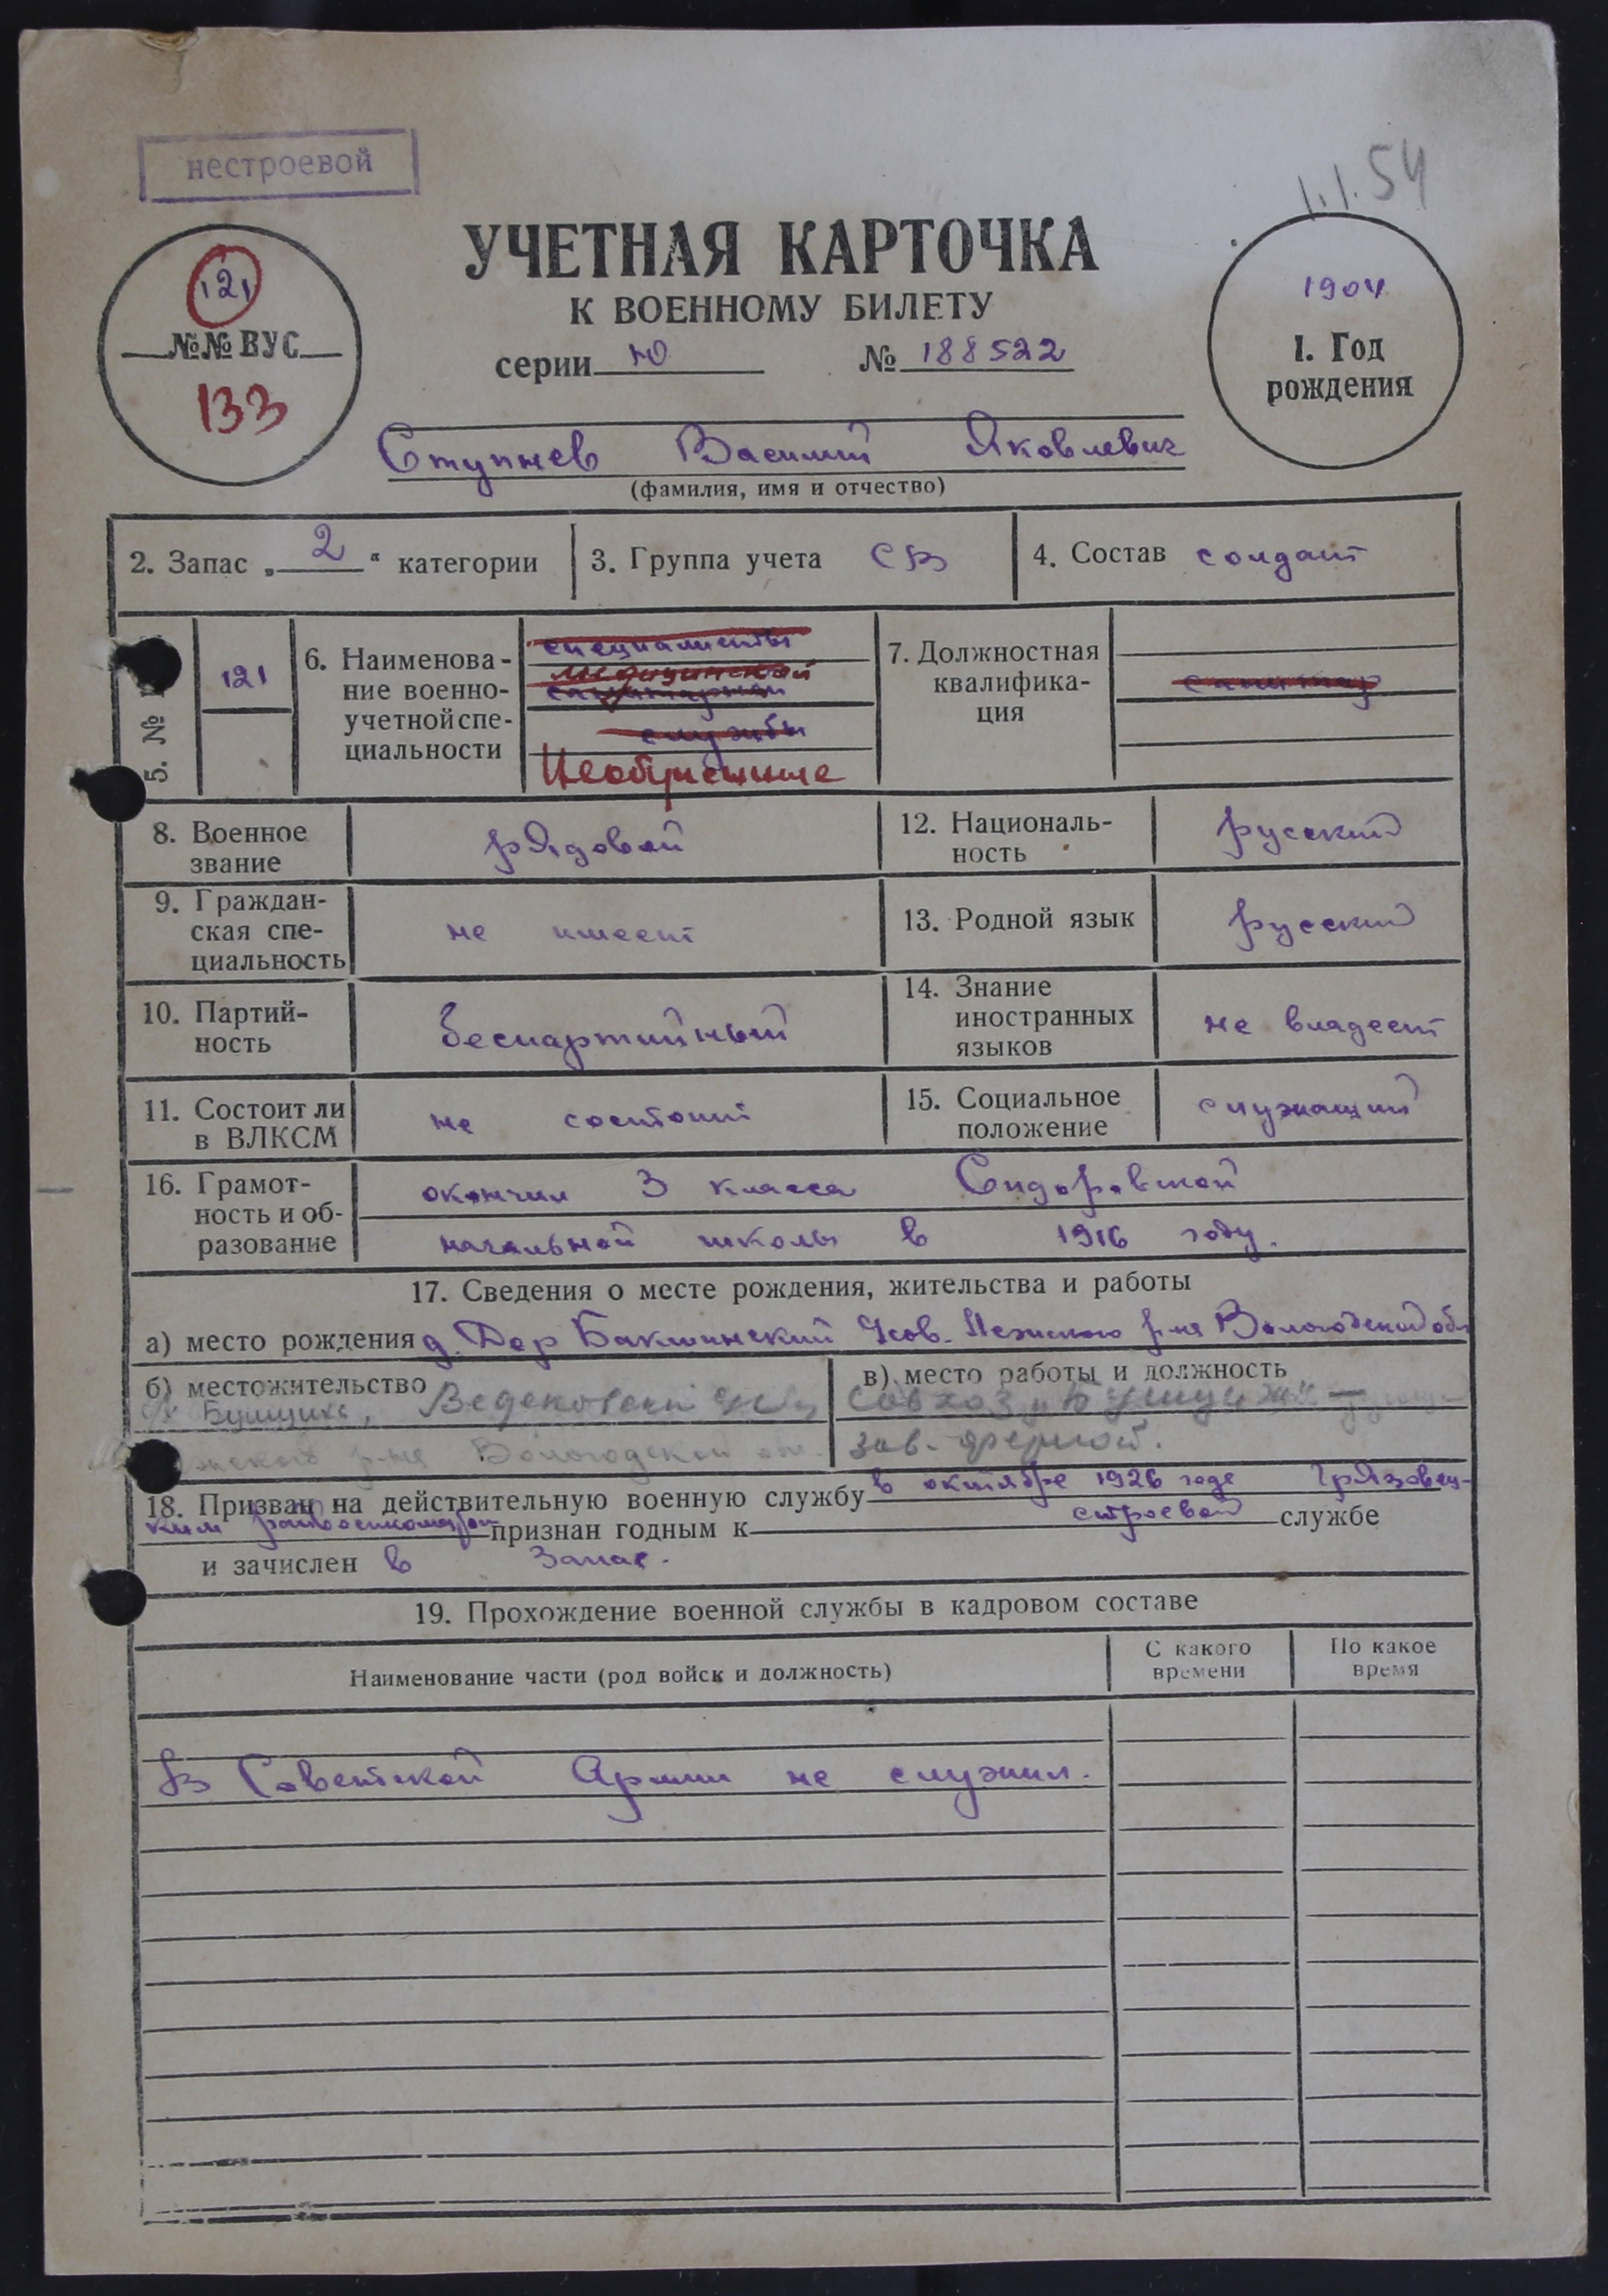 нестроевой
1.1.54
УЧЕТНАЯ КАРТОЧКА
К ВОЕННОМУ БИЛЕТУ
серии Ю № 188522
121
№№ ВУС
133
1904
1. Год
рождения
Ступнев Василий Яковлевич
(фамилия, имя и отчество)
2. Запас „ 2 “ категории
3. Группа учета СВ
4. Состав солдат
5. №
121
6. Наименова-
ние военно-
учетной спе-
циальности
специалисты
медицинской
санитарной
службы
Необученные
7. Должностная
квалифика-
ция
санитар
8. Военное
звание
рядовой
12. Националь-
ность
русский
9. Граждан-
ская спе-
циальность
не имеет
13. Родной язык
русский
10. Партий-
ность
беспартийный
14. Знание
иностранных
языков
не владеет
11. Состоит ли
в ВЛКСМ
не состоит
15. Социальное
положение
служащий
16. Грамот-
ность и об-
разование
окончил 3 класса Сидоровской
начальной школы в 1916 году.
17. Сведения о месте рождения, жительства и работы
а) место рождения д. Дор Бакшинский Усов. Лежского р-на Вологодской обл
б) местожительство
Бушуиха,
р-на Вологодской
в) место работы и должность
Совхоз
зав. фермой.
18. Призван на действительную военную службу в октябре 1926 года Грязовец-
ким райвоенкоматом признан годным к строевой службе
и зачислен в запас.
19. Прохождение военной службы в кадровом составе
Наименование части (род войск и должность)
С какого
времени
По какое
время
В Советской Армии не служил.